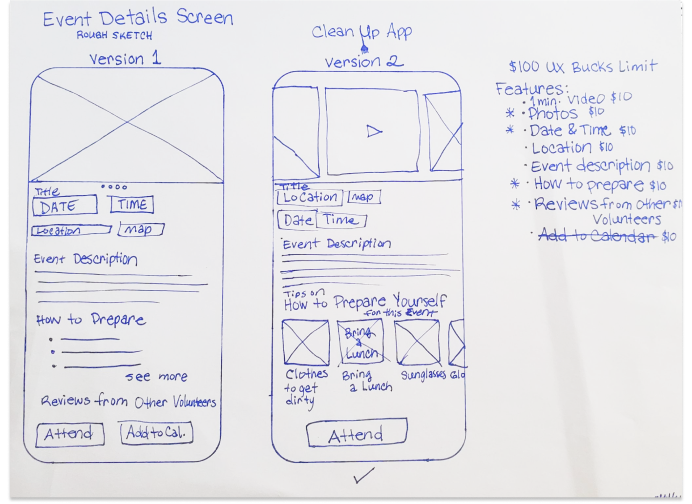 Event Details Screen
ROUGH SKETCH
Version 1
Title
DATE
TIME
Location
map
Event Description
How to Prepare
see more
Reviews from Other Volunteers
Attend
Add to Cal.
Clean Up App
Version 2
Title
Location
map
Date
Time
Event Description
Tips on
How to Prepare Yourself
for this Event
Bring
a
Lunch
Clothes
to get
dirty
Bring
a Lunch
Sunglasses
Glo
Attend
$100 UX Bucks Limit
Features:
• 1 min. Video $10
* • Photos $10
* • Date & Time $10
• Location $10
• Event description $10
* • How to prepare $10
* • Reviews from Other
Volunteers
• Add to Calendar $10